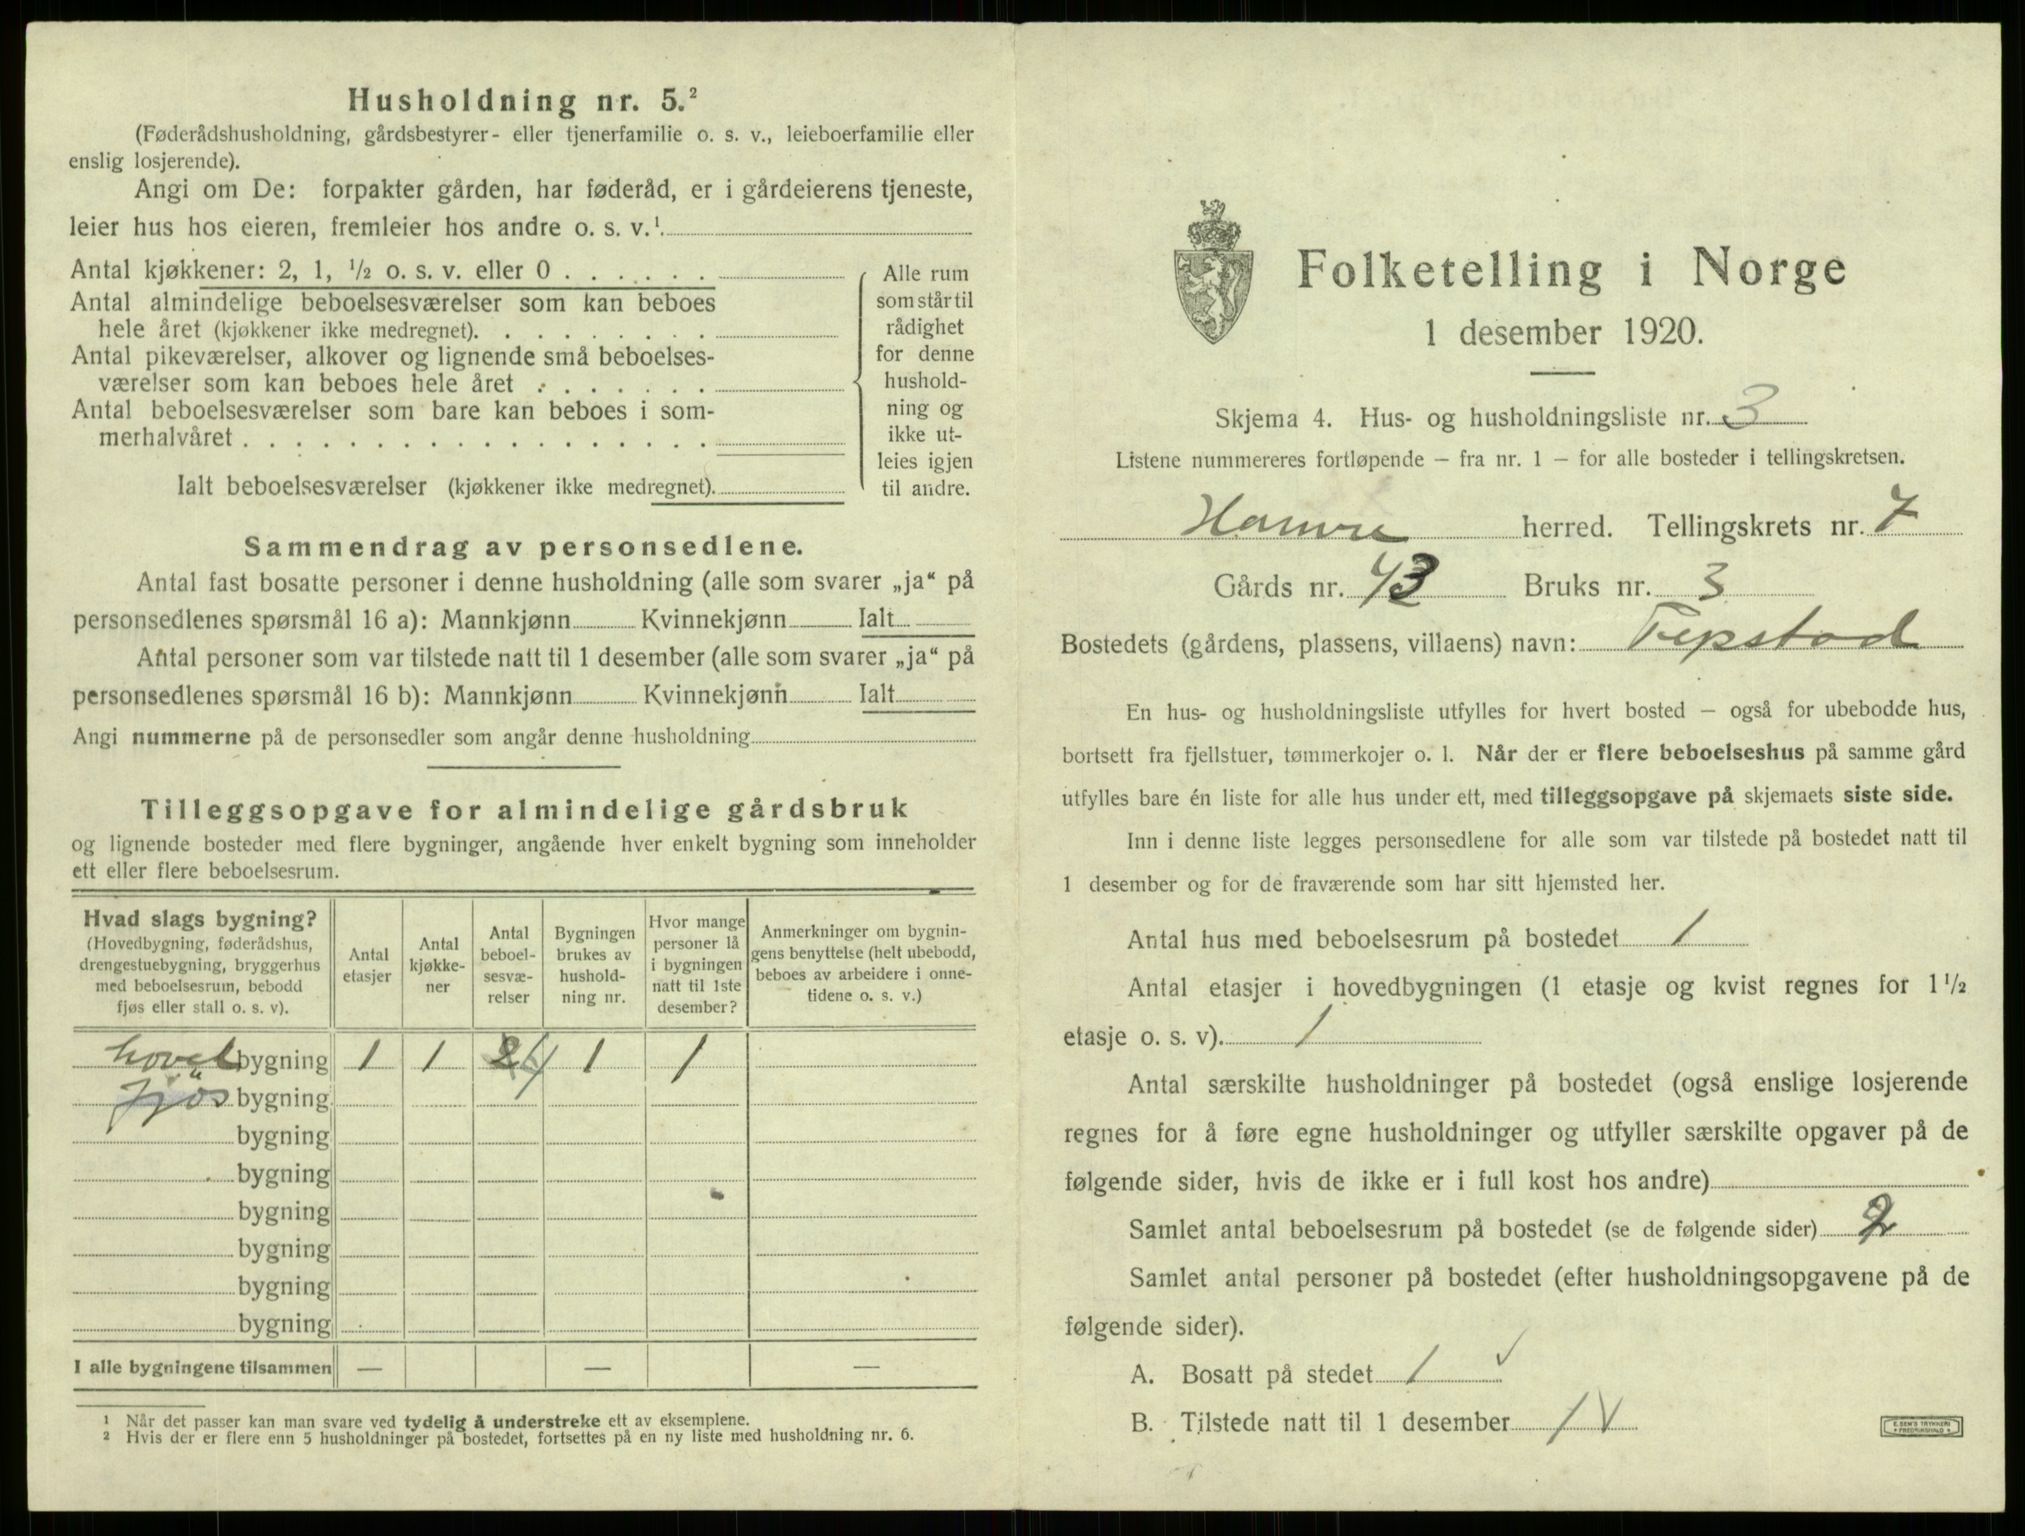 Husholdning nr. 5.²
(Føderådshusholdning, gårdsbestyrer- eller tjenerfamilie o. s. v., leieboerfamilie eller
enslig losjerende).
Angi om De: forpakter gården, har føderåd, er i gårdeierens tjeneste,
leier hus hos eieren, fremleier hos andre o. s. v.¹
Antal kjøkkener: 2, 1, ½ o. s. v. eller 0 . . . . . .
Antal almindelige beboelsesværelser som kan beboes
hele året (kjøkkener ikke medregnet). . . . . . . . .
Antal pikeværelser, alkover og lignende små beboelses-
værelser som kan beboes hele året . . . . . . .
Antal beboelsesværelser som bare kan beboes i som-
merhalvåret . . . . . . . . . . . . . . . . . .
Ialt beboelsesværelser (kjøkkener ikke medregnet).
Alle rum
som står til
rådighet
for denne
hushold-
ning og
ikke ut-
leies igjen
til andre.
Sammendrag av personsedlene.
Antal fast bosatte personer i denne husholdning (alle som svarer „ja“ på
personsedlenes spørsmål 16 a): Mannkjønn Kvinnekjønn Ialt
Antal personer som var tilstede natt til 1 desember (alle som svarer „ja“ på
personsedlenes spørsmål 16 b): Mannkjønn Kvinnekjønn Ialt
Angi nummerne på de personsedler som angår denne husholdning
Tilleggsopgave for almindelige gårdsbruk
og lignende bosteder med flere bygninger, angående hver enkelt bygning som inneholder
ett eller flere beboelsesrum.
Hvad slags bygning?
(Hovedbygning, føderådshus,
drengestuebygning, bryggerhus
med beboelsesrum, bebodd
fjøs eller stall o. s. v).
Antal
etasjer
Antal
kjøkke-
ner
Antal
beboel-
sesvæ-
relser
Bygningen
brukes av
hushold-
ning nr.
Hvor mange
personer lå
i bygningen
natt til 1ste
desember?
Anmerkninger om bygnin-
gens benyttelse (helt ubebodd,
beboes av arbeidere i onne-
tidene o. s. v.)
hoved bygning 1 1 2 1 1
fjös bygning
bygning
bygning
bygning
bygning
bygning
bygning
I alle bygningene tilsammen — — —
¹ Når det passer kan man svare ved tydelig å understreke ett av eksemplene.
² Hvis der er flere enn 5 husholdninger på bostedet, fortsettes på en ny liste med husholdning nr. 6.
Folketelling i Norge
1 desember 1920.
Skjema 4. Hus- og husholdningsliste nr. 3
Listene nummereres fortløpende – fra nr. 1 – for alle bosteder i tellingskretsen.
Hamre herred. Tellingskrets nr. 7
Gårds nr. 43 Bruks nr. 3
Bostedets (gårdens, plassens, villaens) navn:
En hus- og husholdningsliste utfylles for hvert bosted – også for ubebodde hus,
bortsett fra fjellstuer, tømmerkojer o. l. Når der er flere beboelseshus på samme gård
utfylles bare én liste for alle hus under ett, med tilleggsopgave på skjemaets siste side.
Inn i denne liste legges personsedlene for alle som var tilstede på bostedet natt til
1 desember og for de fraværende som har sitt hjemsted her.
Antal hus med beboelsesrum på bostedet 1
Antal etasjer i hovedbygningen (1 etasje og kvist regnes for 1½
etasje o. s. v). 1
Antal særskilte husholdninger på bostedet (også enslige losjerende
regnes for å føre egne husholdninger og utfyller særskilte opgaver på de
følgende sider, hvis de ikke er i full kost hos andre)
Samlet antal beboelsesrum på bostedet (se de følgende sider) 2
Samlet antal personer på bostedet (efter husholdningsopgavene på de
følgende sider).
A. Bosatt på stedet 1 ✓
B. Tilstede natt til 1 desember 1 ✓
E. SEM'S TRYKKERI
FREDRIKSHALD